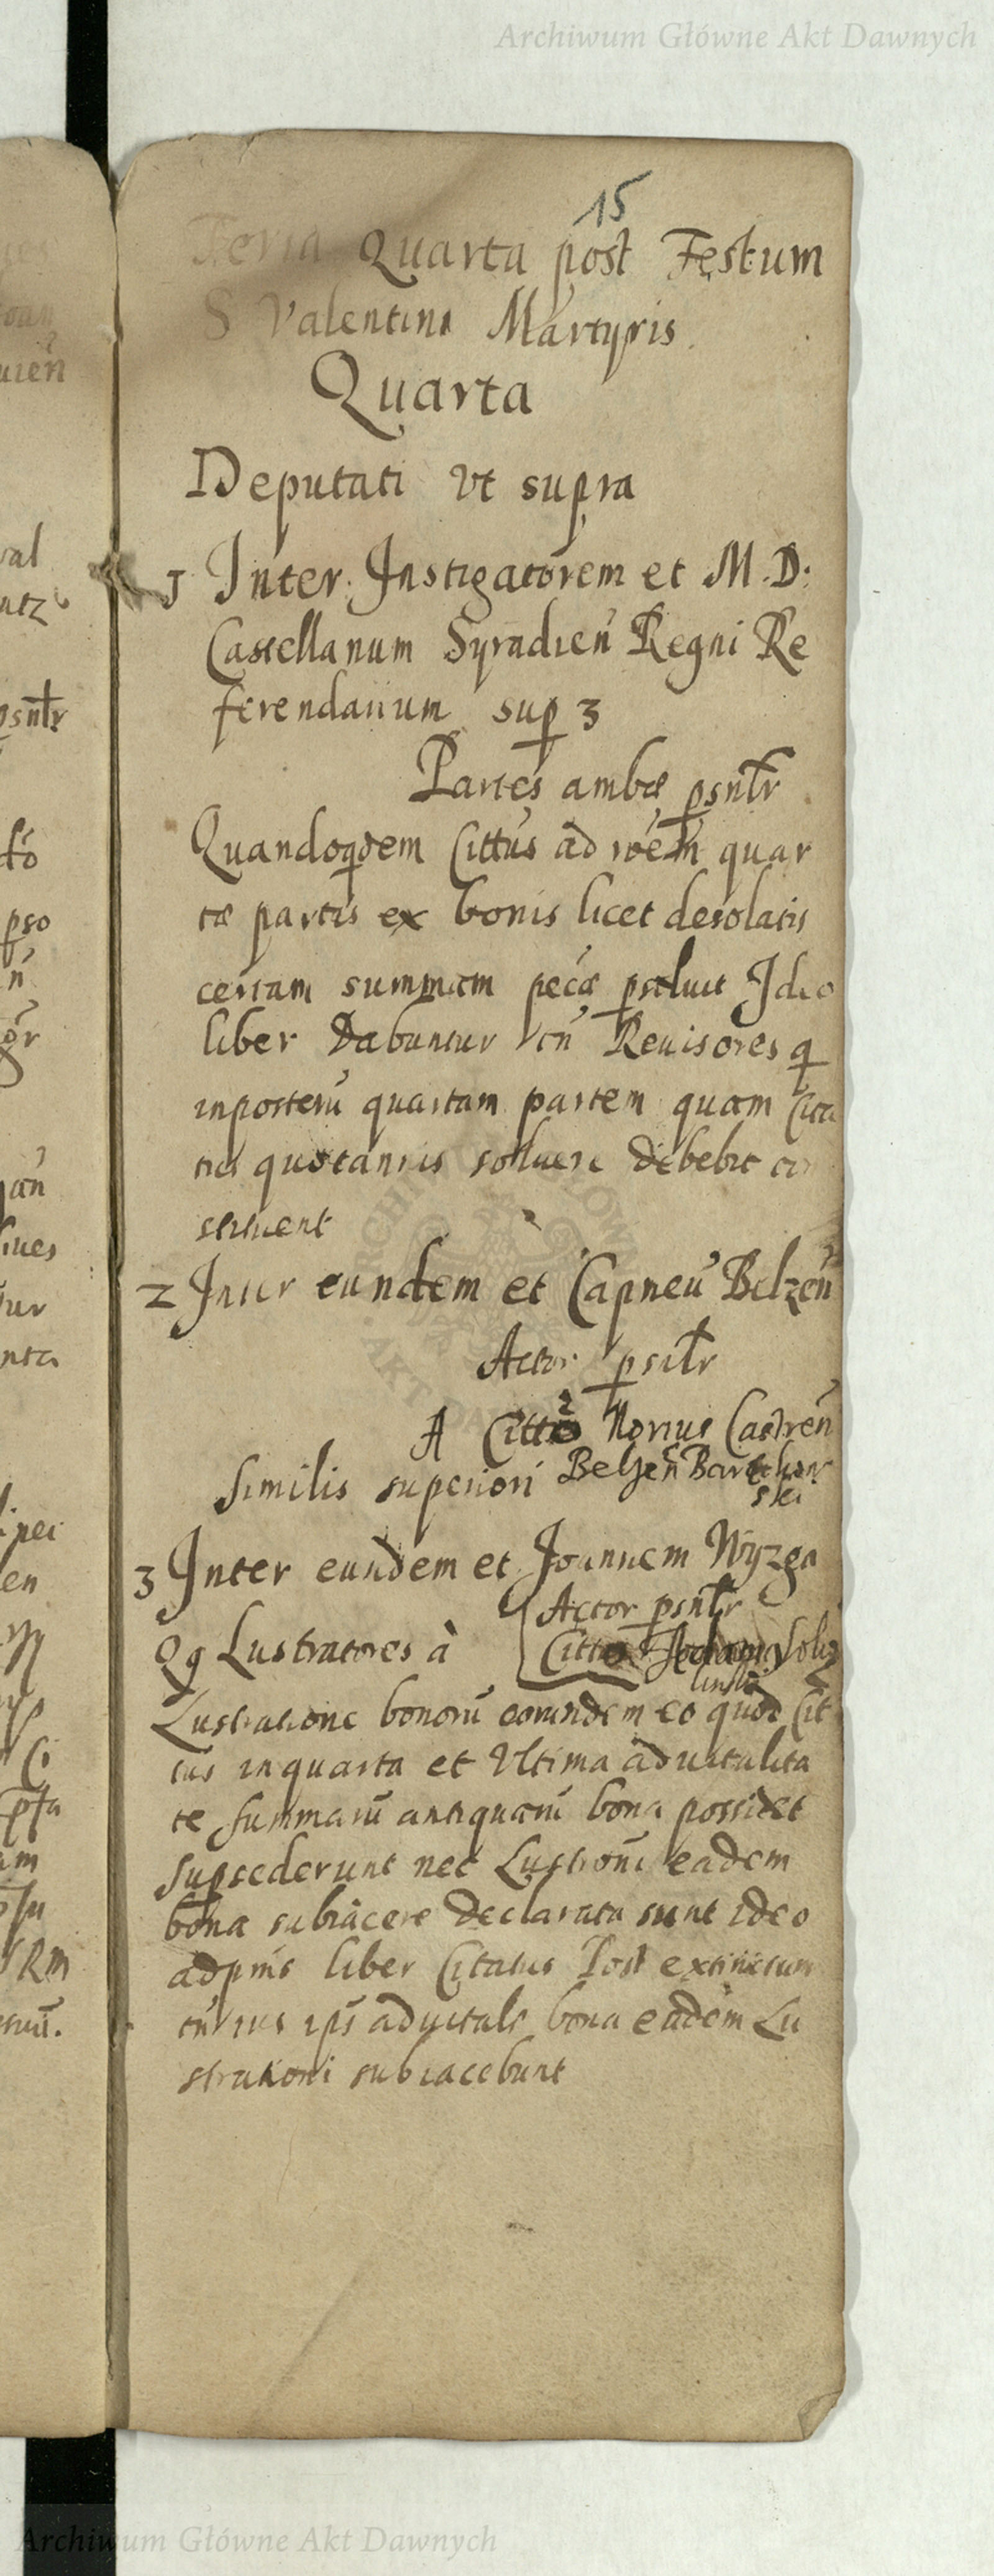 Archiwum Główne Akt Dawnych
15
Feria Quarta post Festum
S Valentini Martyris
Quarta
Deputati vt supra
1 Inter Instigatorem et M. D:
Castellanum Syradień Regni Re
ferendarium sup 3
Partes ambæ psntr
Quandoqdem Cittus ad quar
tæ partis ex bonis licet desolatis
certam summam pecæ psoluit Ideo
liber Dabuntur tń Reuisores q
inposterū quartam partem quam Cita
tus quotannis soluere debebit
2 Inter eundem et Capneū Belzeń
Actor psntr
A Citto Norius Castreń
Similis superiori Belzeń
ski
3 Inter eundem et Joannem Wyzga
Actor psntr
Qq Lustratores à Citto
Lustratione bonorū eorundem eo quod Cit
tus in quarta et Vltima aduitalita
te summarū antiquarū bona possidet
supsederunt nec Lustrōni eadem
bona subiacere declarata sunt ideo
adpns liber Citatus Post extinctum
tń ius ips aduitale bona eadem Lu
strationi subiacebunt
Archiwum Główne Akt Dawnych